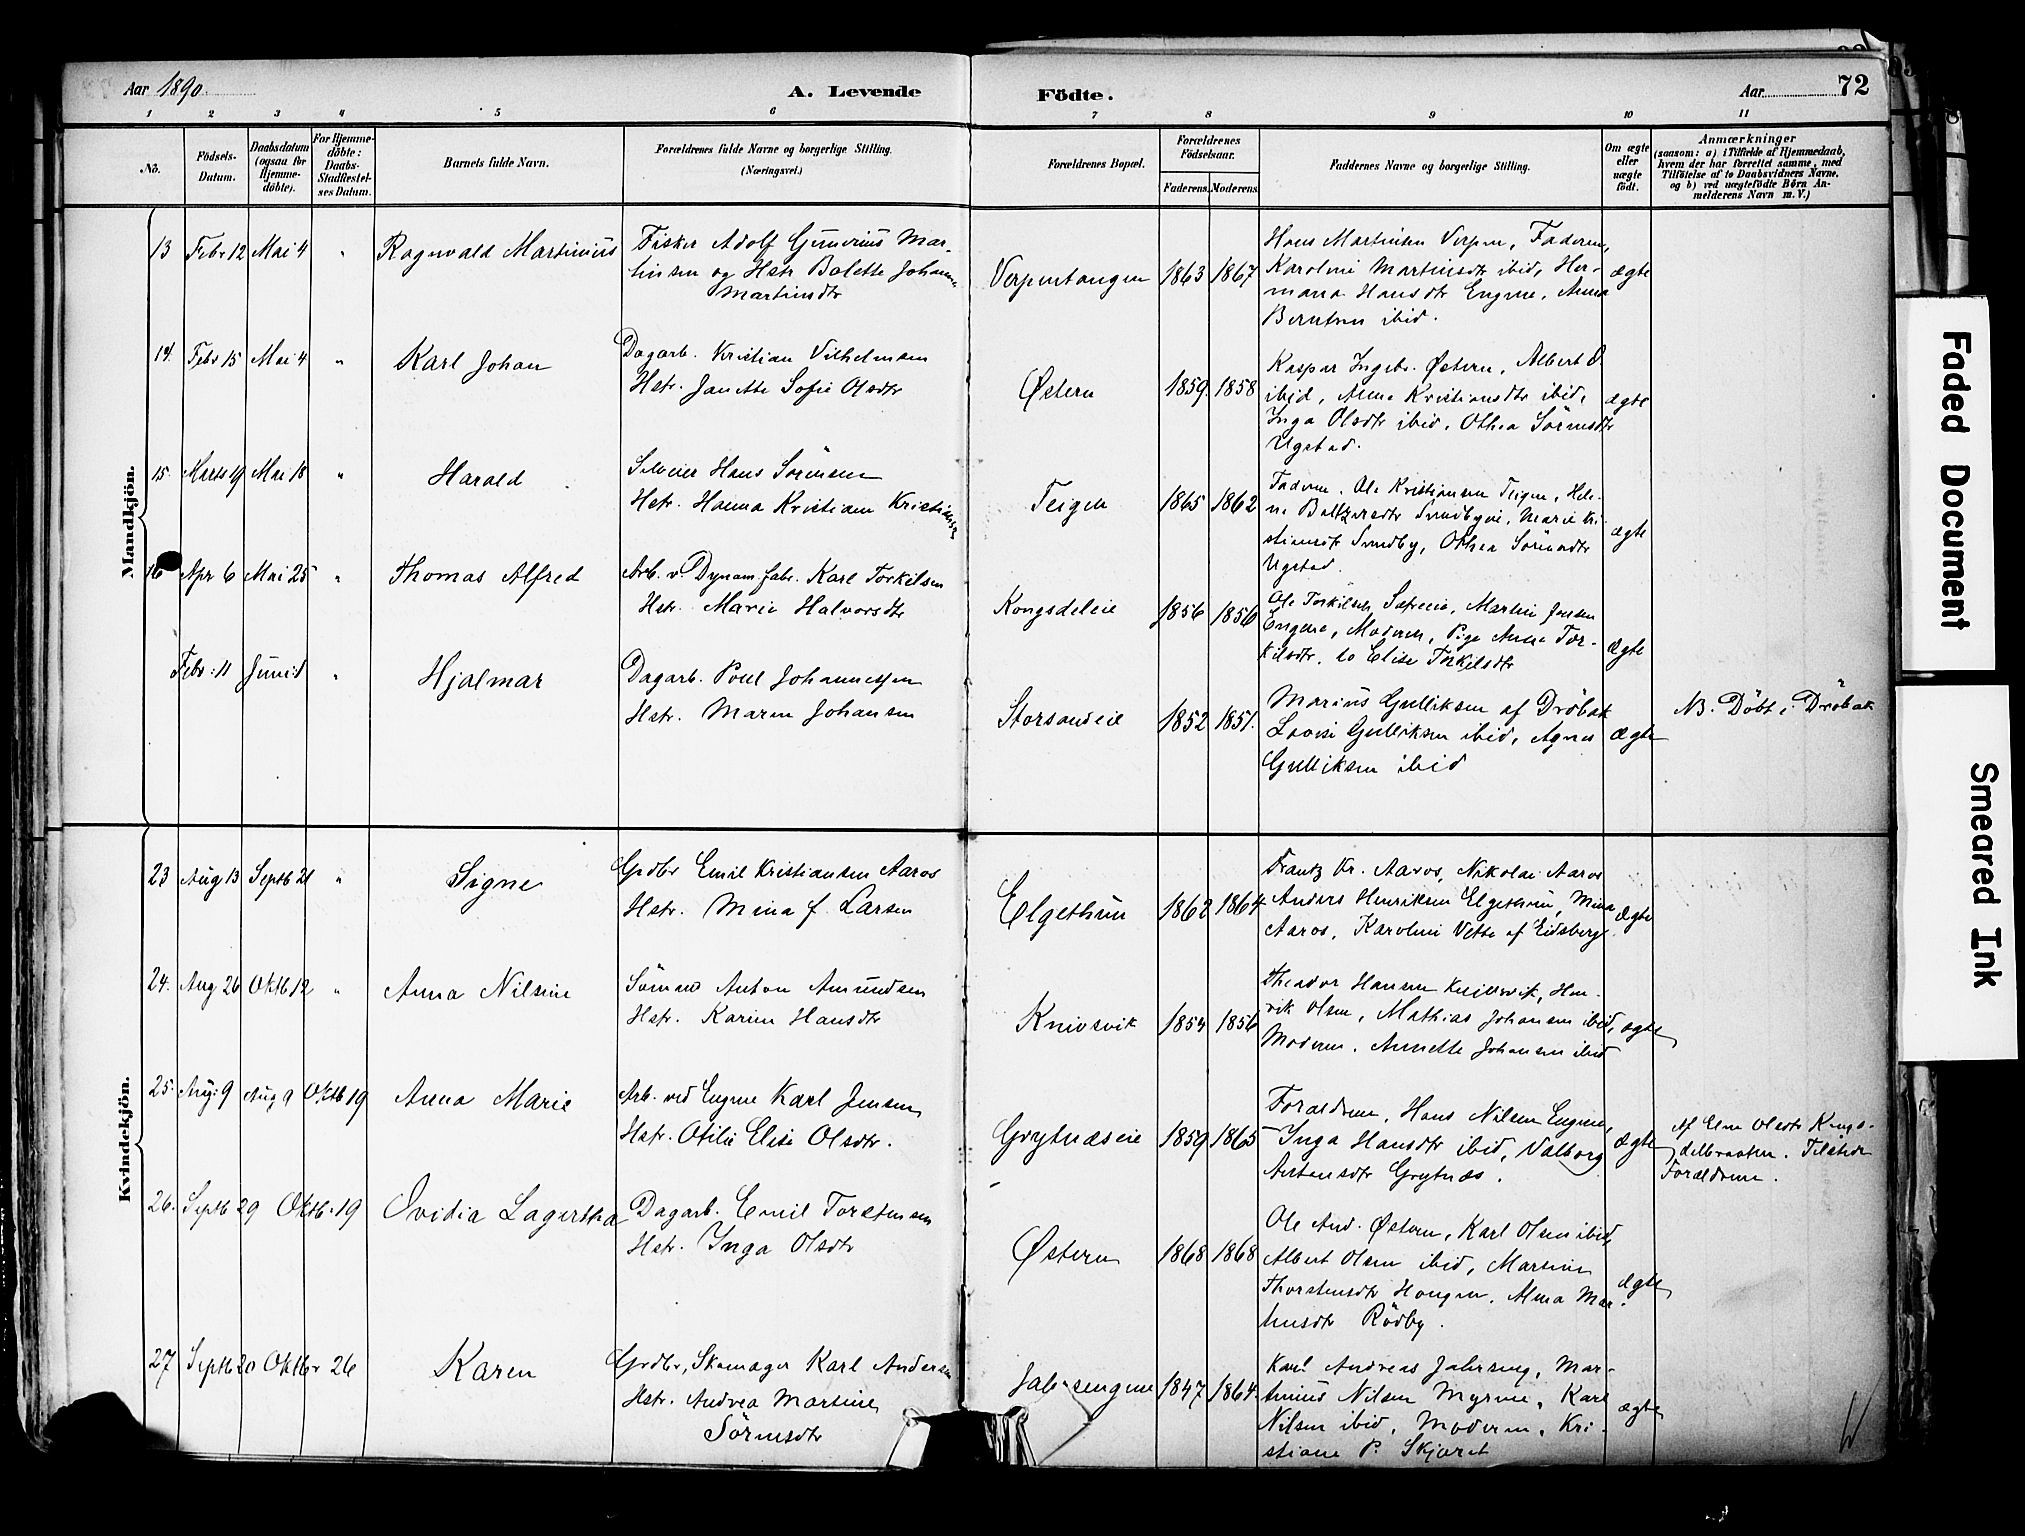 Aar 1890.
A. Levende
Födte.
Aar
72
1 2 3 4 5 6 7 8 9 10 11
No.
Födsels-
Datum.
Daabsdatum
(ogsaa for
Hjemme-
döbte).
For Hjemme-
döbte:
Daabs-
Stadfæstel-
ses Datum.
Barnets fulde Navn.
Forældrenes fulde Navne og borgerlige Stilling.
(Næringsvei.)
Forældrenes Bopæl.
Forældrenes
Födselsaar.
Faderens. Moderens.
Faddernes Navne og borgerlige Stilling.
Om ægte
eller
uægte
födt.
Anmærkninger
(saasom: a) i Tilfælde af Hjemmedaab,
hvem der har forrettet samme, med
Tilföielse af to Daabsvidners Navne,
og b) ved uægtefödte Börn An-
melderens Navn m.V.)
Mandkjön.
13 Febr 12 Mai 4 " Ragnvald Martinius
Fisker Adolf Gunerius Mar-
tinsen og Hstr Bolette Johanne
Martinsdtr
Verpentangen 1863 1867
Hans Martinsen Verpen, Faderen,
Karoline Martinsdtr ibid, Her-
mana Hansdtr Engene, Anna
Berntsen ibid.
ægte
14. Febr 15 Mai 4 " Karl Johan
Dagarb. Kristian Vilhelmsen
Hstr. Janette Sofie Olsdtr
Østern 1859. 1858
Kaspar Ingebr. Østern, Albert O.
ibid, Anna Kristiansdtr ibid,
Inga Olsdtr ibid, Othea Sörensdtr
Ugstad.
ægte
15. Marts 19 Mai 18 " Harald
Selveier Hans Sörensen
Hstr. Hanna Kristiane Kristiansen
Teigen 1865 1862
Faderen, Ole Kristiansen Teigen, Hele-
ne Baltzersdtr Sundbyeie, Marie Kri-
stiansdtr Sundby, Othea Sörensdtr
Ugstad.
ægte
16 Apr 6 Mai 25 " Thomas Alfred
Arb. v. Dynam. fabr. Karl Torkilsen
Hstr. Marie Halvorsdtr
Kongsdeleie 1856 1856
Ole Torkilsen Sætreeie, Martin Jensen
Engene, Moderen, Pige Anne Tor-
kilsdtr, to Elise Torkilsdtr
ægte
Febr: 11 Juni " Hjalmar
Dagarb. Poul Johannesen
Hstr. Maren Johansen
Storsandeie 1852 1851.
Marius Gulliksen af Dröbak
Lovise Gulliksen ibid, Agnes
Gulliksen ibid
ægte
NB. Döbt i Dröbak
Kvindekjön.
23 Aug 13 Septb 21 " Signe
Grdbr Emil Kristiansen Aaros
Hstr. Mina f. Larsen
Elgethun 1862 1864.
Frantz Kr. Aaros, Nikolai Aaros
Anders Henriksen Elgethun, Mina
Aaros, Karoline Vette af Eidsberg.
ægte
24. Aug 26 Oktb 12 " Anna Nilsine
Sömand Anton Amundsen
Hstr. Karine Hansdtr
Knivsvik 1854 1856
Theodor Hansen Knivsvik, Hen-
rik Olsen, Mathias Johansen ibid,
Moderen, Annette Johansen ibid
ægte
25. Aug: 9 Aug 9 Oktb 19 Anna Marie
Arb. ved Engene Karl Jensen
Hstr. Otilie Elise Olsdtr.
Grytnæseie 1859 1865
Forældrene, Hans Nilsen Engene,
Inga Hansdtr ibid, Valborg
Antonsdtr Grytnæs.
ægte
Af Elen Olsdtr Kongs-
delbraaten. Tilstede
Forældrene.
26. Septb 29 Oktb. 19 Ovidia Lagertha
Dagarb. Emil Torstensen
Hstr. Inga Olsdtr
Østern 1868 1868
Ole And. Østern, Karl Olsen ibid,
Albert Olsen ibid, Martine
Thorstensdtr Haugen, Alma Mar-
tinsdtr Rödby.
ægte
27 Septb 20 Oktbr 26 Karen
Grdbr, Skomager Karl Andersen
Hstr. Andrea Martine
Sörensdtr
Jahrsengene 1847 1864.
Karl Andreas Jahrseng, Mar-
tinius Nilsen Myrene, Karl
Nilsen ibid, Moderen, Kri-
stiane P. Skjæret
ægte
Faded Document
Smeared Ink